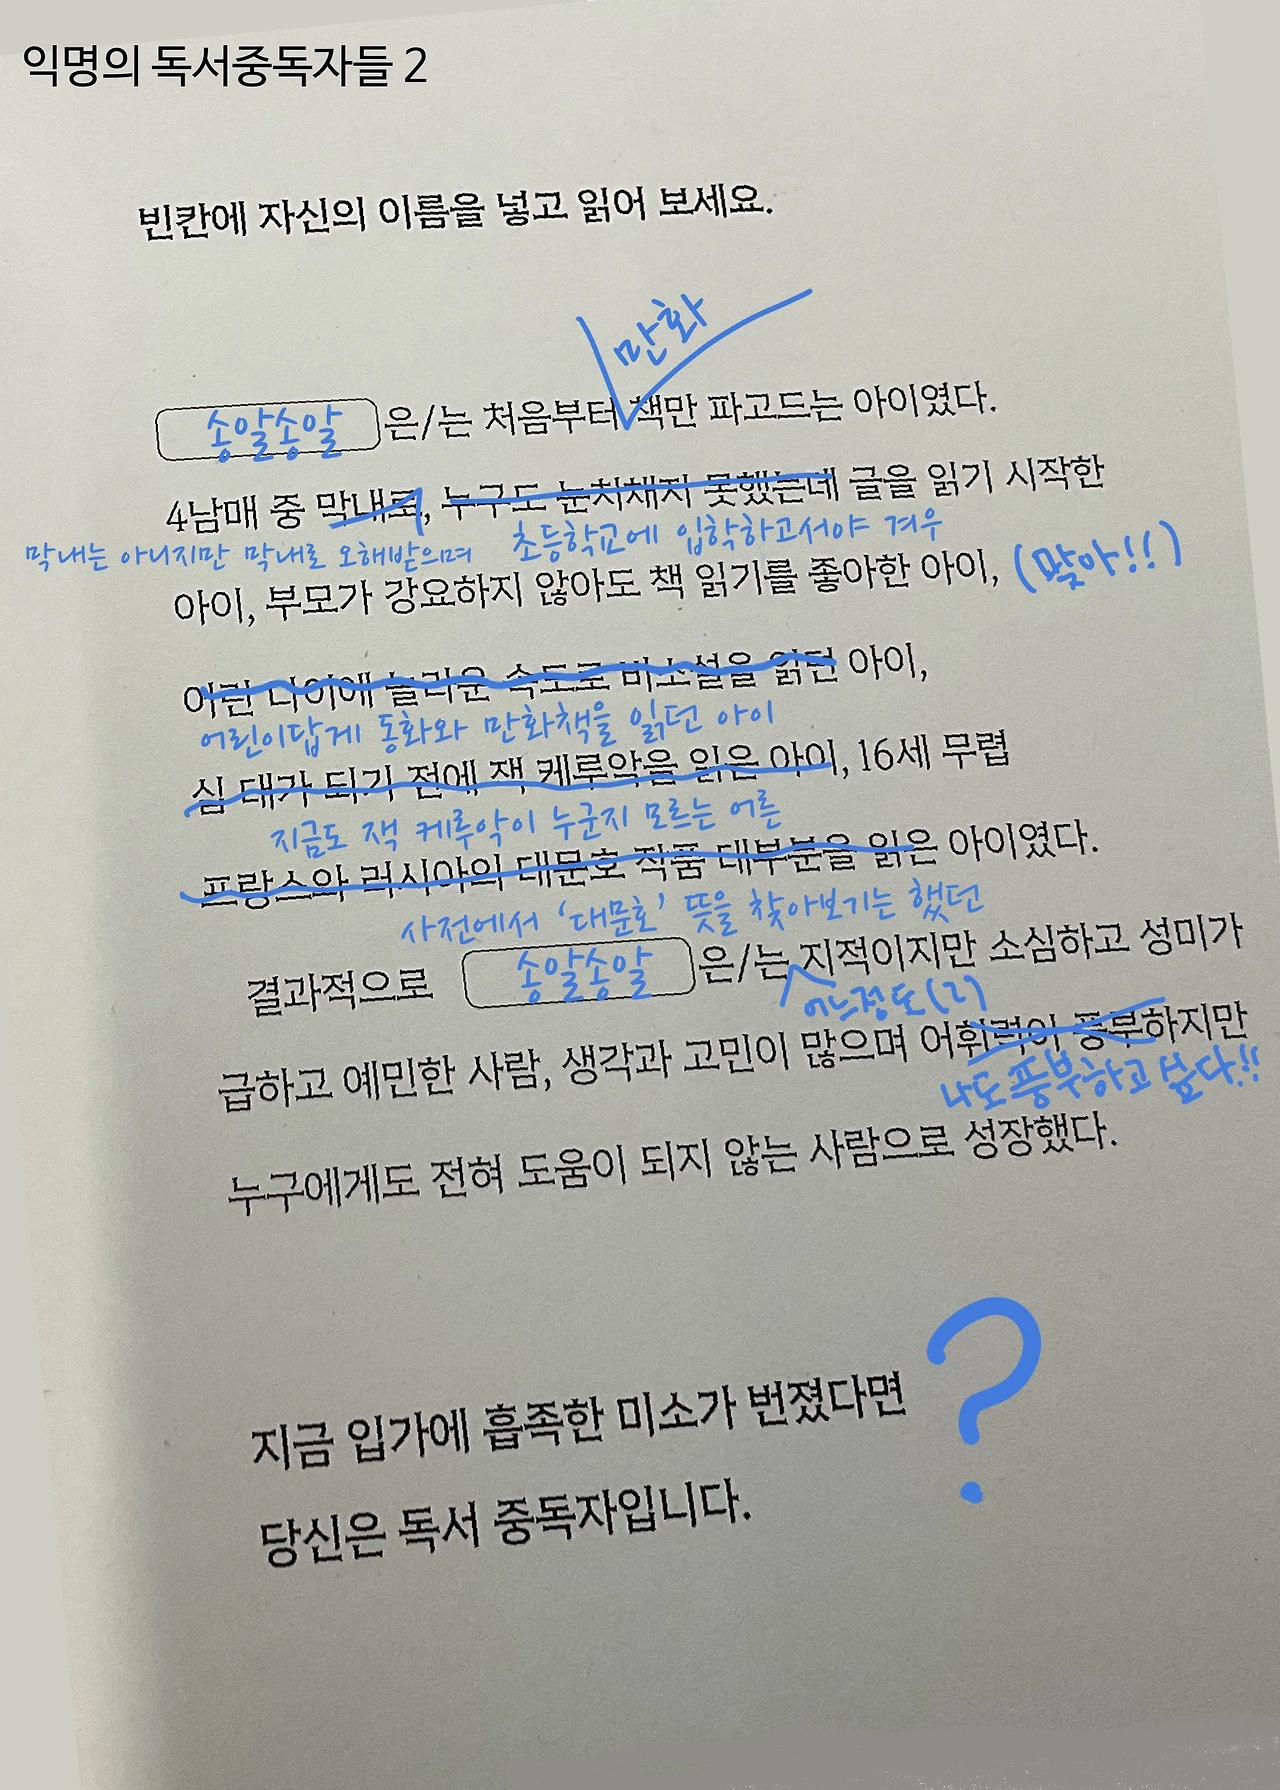 익명의 독서중독자들 2
빈칸에 자신의 이름을 넣고 읽어 보세요.
만화
송알송알 은/는 처음부터 책만 파고드는 아이였다.
4남매 중 막내로, 누구도 눈치채지 못했는데 글을 읽기 시작한
막내는 아니지만 막내로 오해받으며 초등학교에 입학하고서야 겨우
아이, 부모가 강요하지 않아도 책 읽기를 좋아한 아이, (맞아!!)
어린 나이에 놀라운 속도로 비소설을 읽던 아이,
어린이답게 동화와 만화책을 읽던 아이
십 대가 되기 전에 잭 케루악을 읽은 아이, 16세 무렵
지금도 잭 케루악이 누군지 모르는 어른
프랑스와 러시아의 대문호 작품 대부분을 읽은 아이였다.
사전에서 '대문호' 뜻을 찾아보기는 했던
결과적으로 송알송알 은/는 지적이지만 소심하고 성미가
어느정도(?)
급하고 예민한 사람, 생각과 고민이 많으며 어휘력이 풍부하지만
나도 풍부하고 싶다!!
누구에게도 전혀 도움이 되지 않는 사람으로 성장했다.
지금 입가에 흡족한 미소가 번졌다면 ?
당신은 독서 중독자입니다.